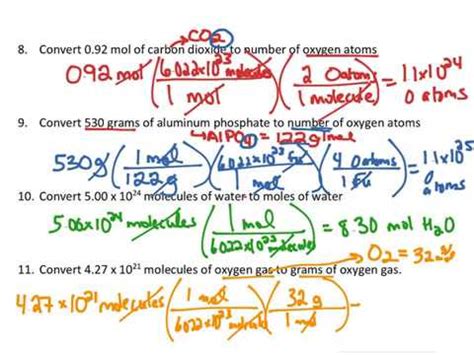 →CO2
8. Convert 0.92 mol of carbon dioxide to number of oxygen atoms
0.92 mol (6.022x10^23 molecules / 1 mol) (2 O atoms / 1 molecule) = 1.1x10^24 O atoms
9. Convert 530 grams of aluminum phosphate to number of oxygen atoms
→AlPO4 = 122g/mol
530g (1 mol / 122g) (6.022x10^23 / 1 mol) (4 O atoms / 1) = 1.1x10^25 O atoms
10. Convert 5.00 x 10^24 molecules of water to moles of water
5.00x10^24 molecules (1 mol / 6.022x10^23 molecules) = 8.30 mol H2O
→O2 = 32
11. Convert 4.27 x 10^21 molecules of oxygen gas to grams of oxygen gas.
4.27x10^21 molecules (1 mol / 6.022x10^23 molecules) (32 g / 1 mol) =